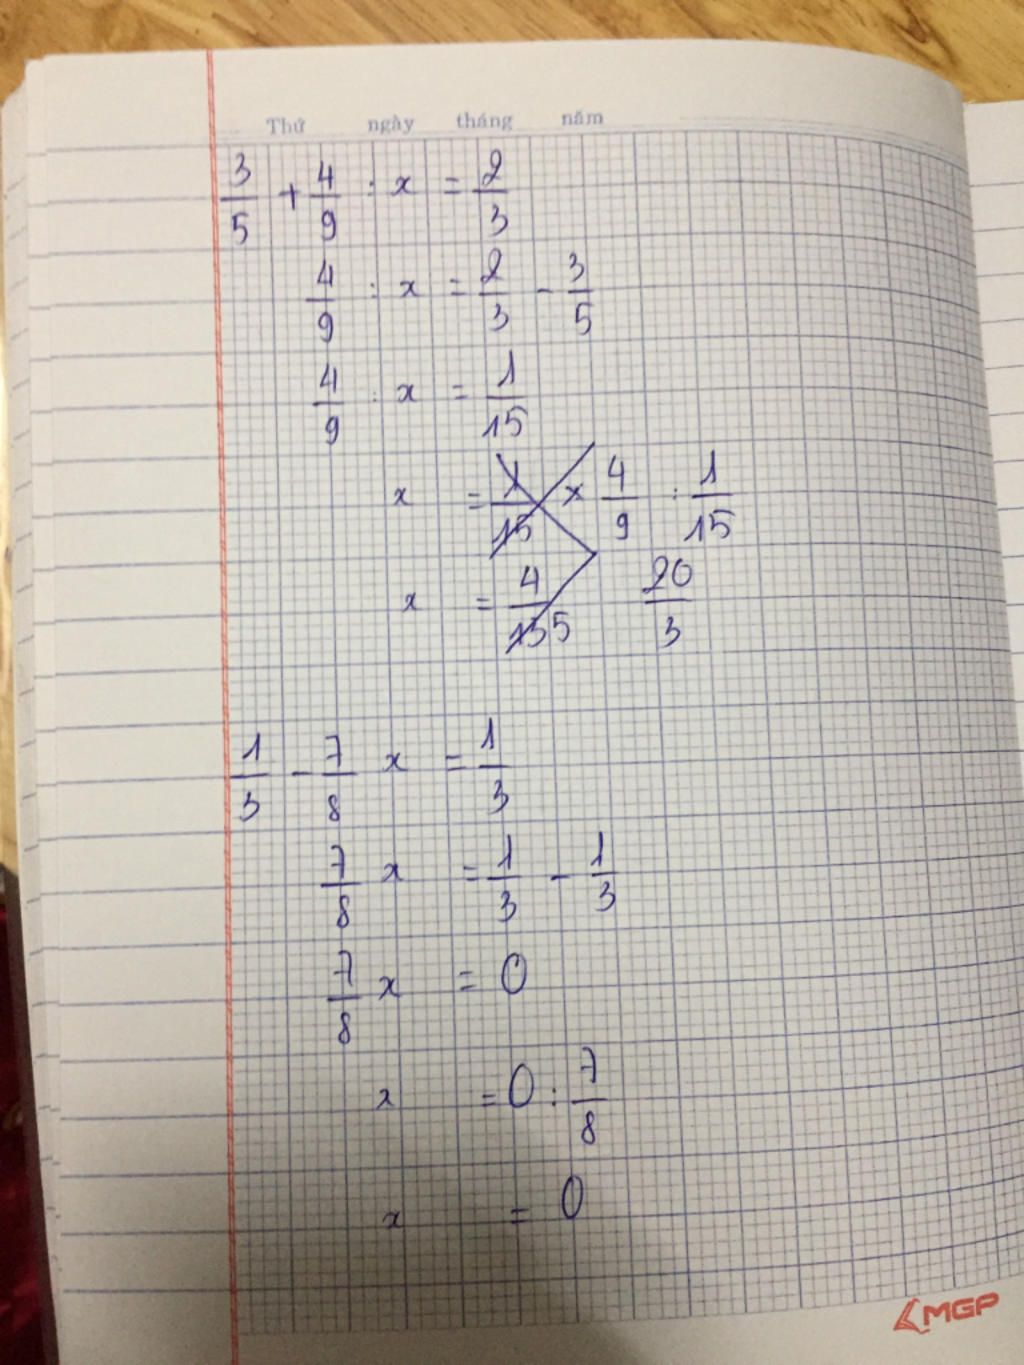 Thứ ngày tháng năm
3/5 + 4/9 : x = 2/3
4/9 : x = 2/3 - 3/5
4/9 : x = 1/15
x = 1/15 × 4/9 : 1/15
x = 4/135 20/3
1/3 - 7/8 x = 1/3
7/8 x = 1/3 - 1/3
7/8 x = 0
x = 0 : 7/8
x = 0
MGP